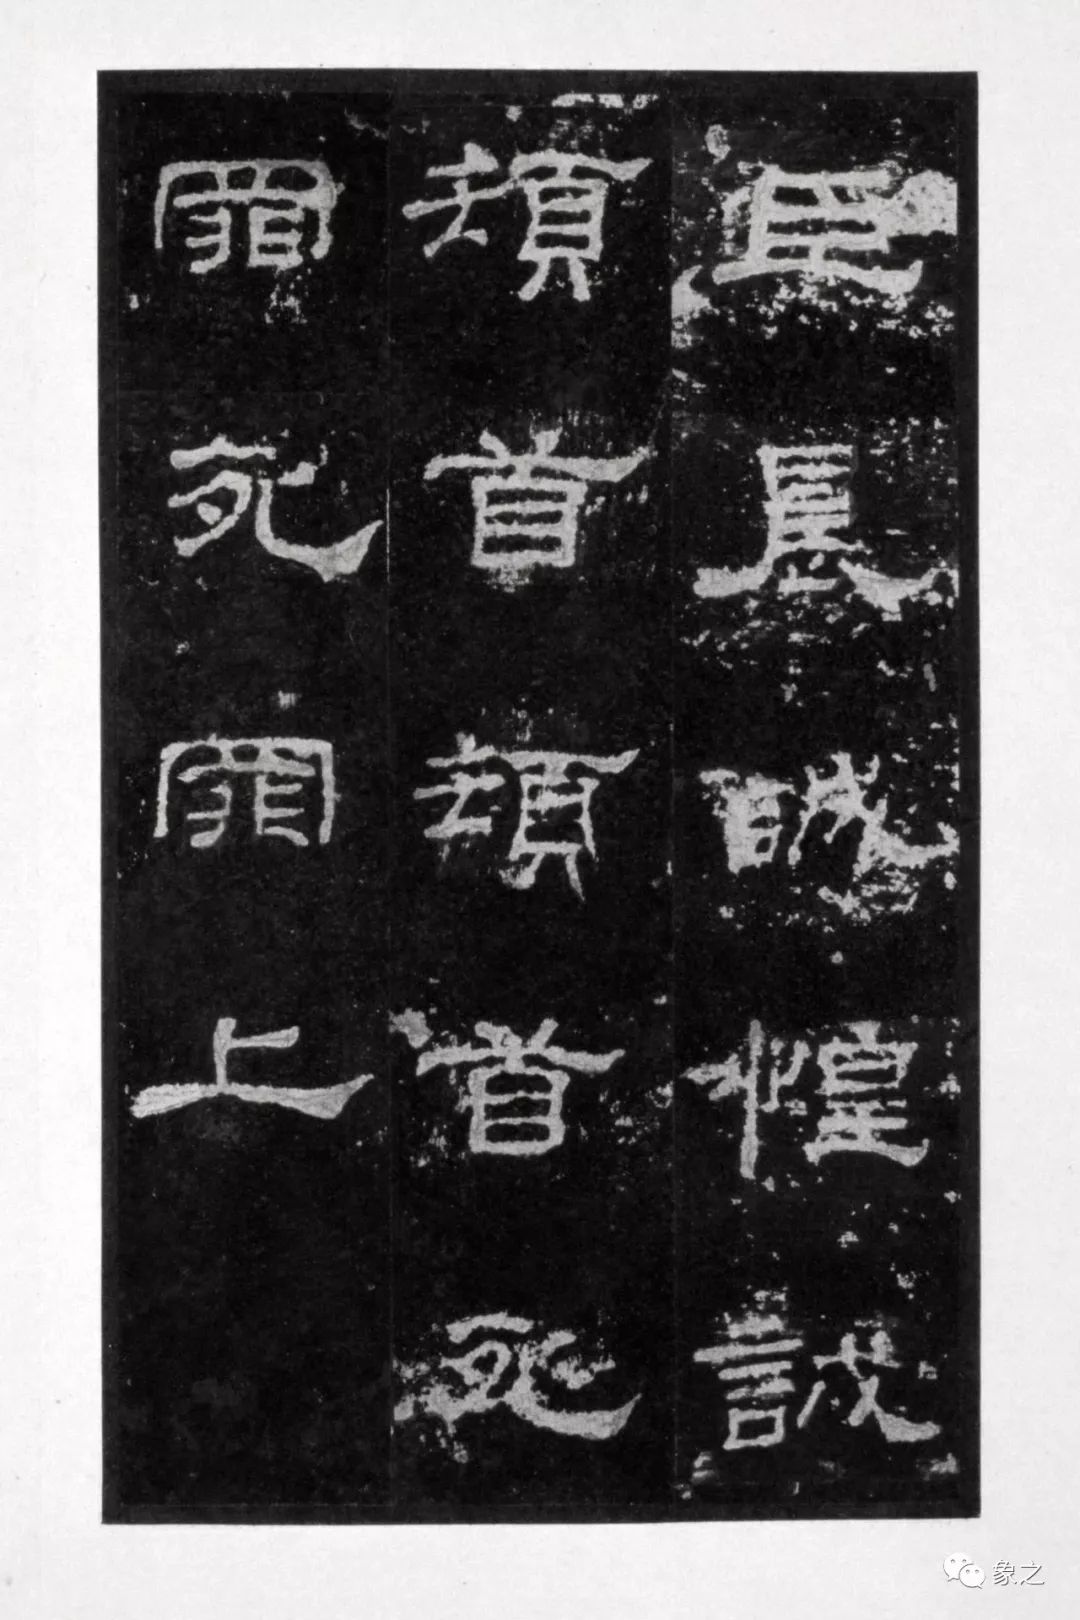 臣晨誠惶誠
頓首頓首死
罪死罪上
象之